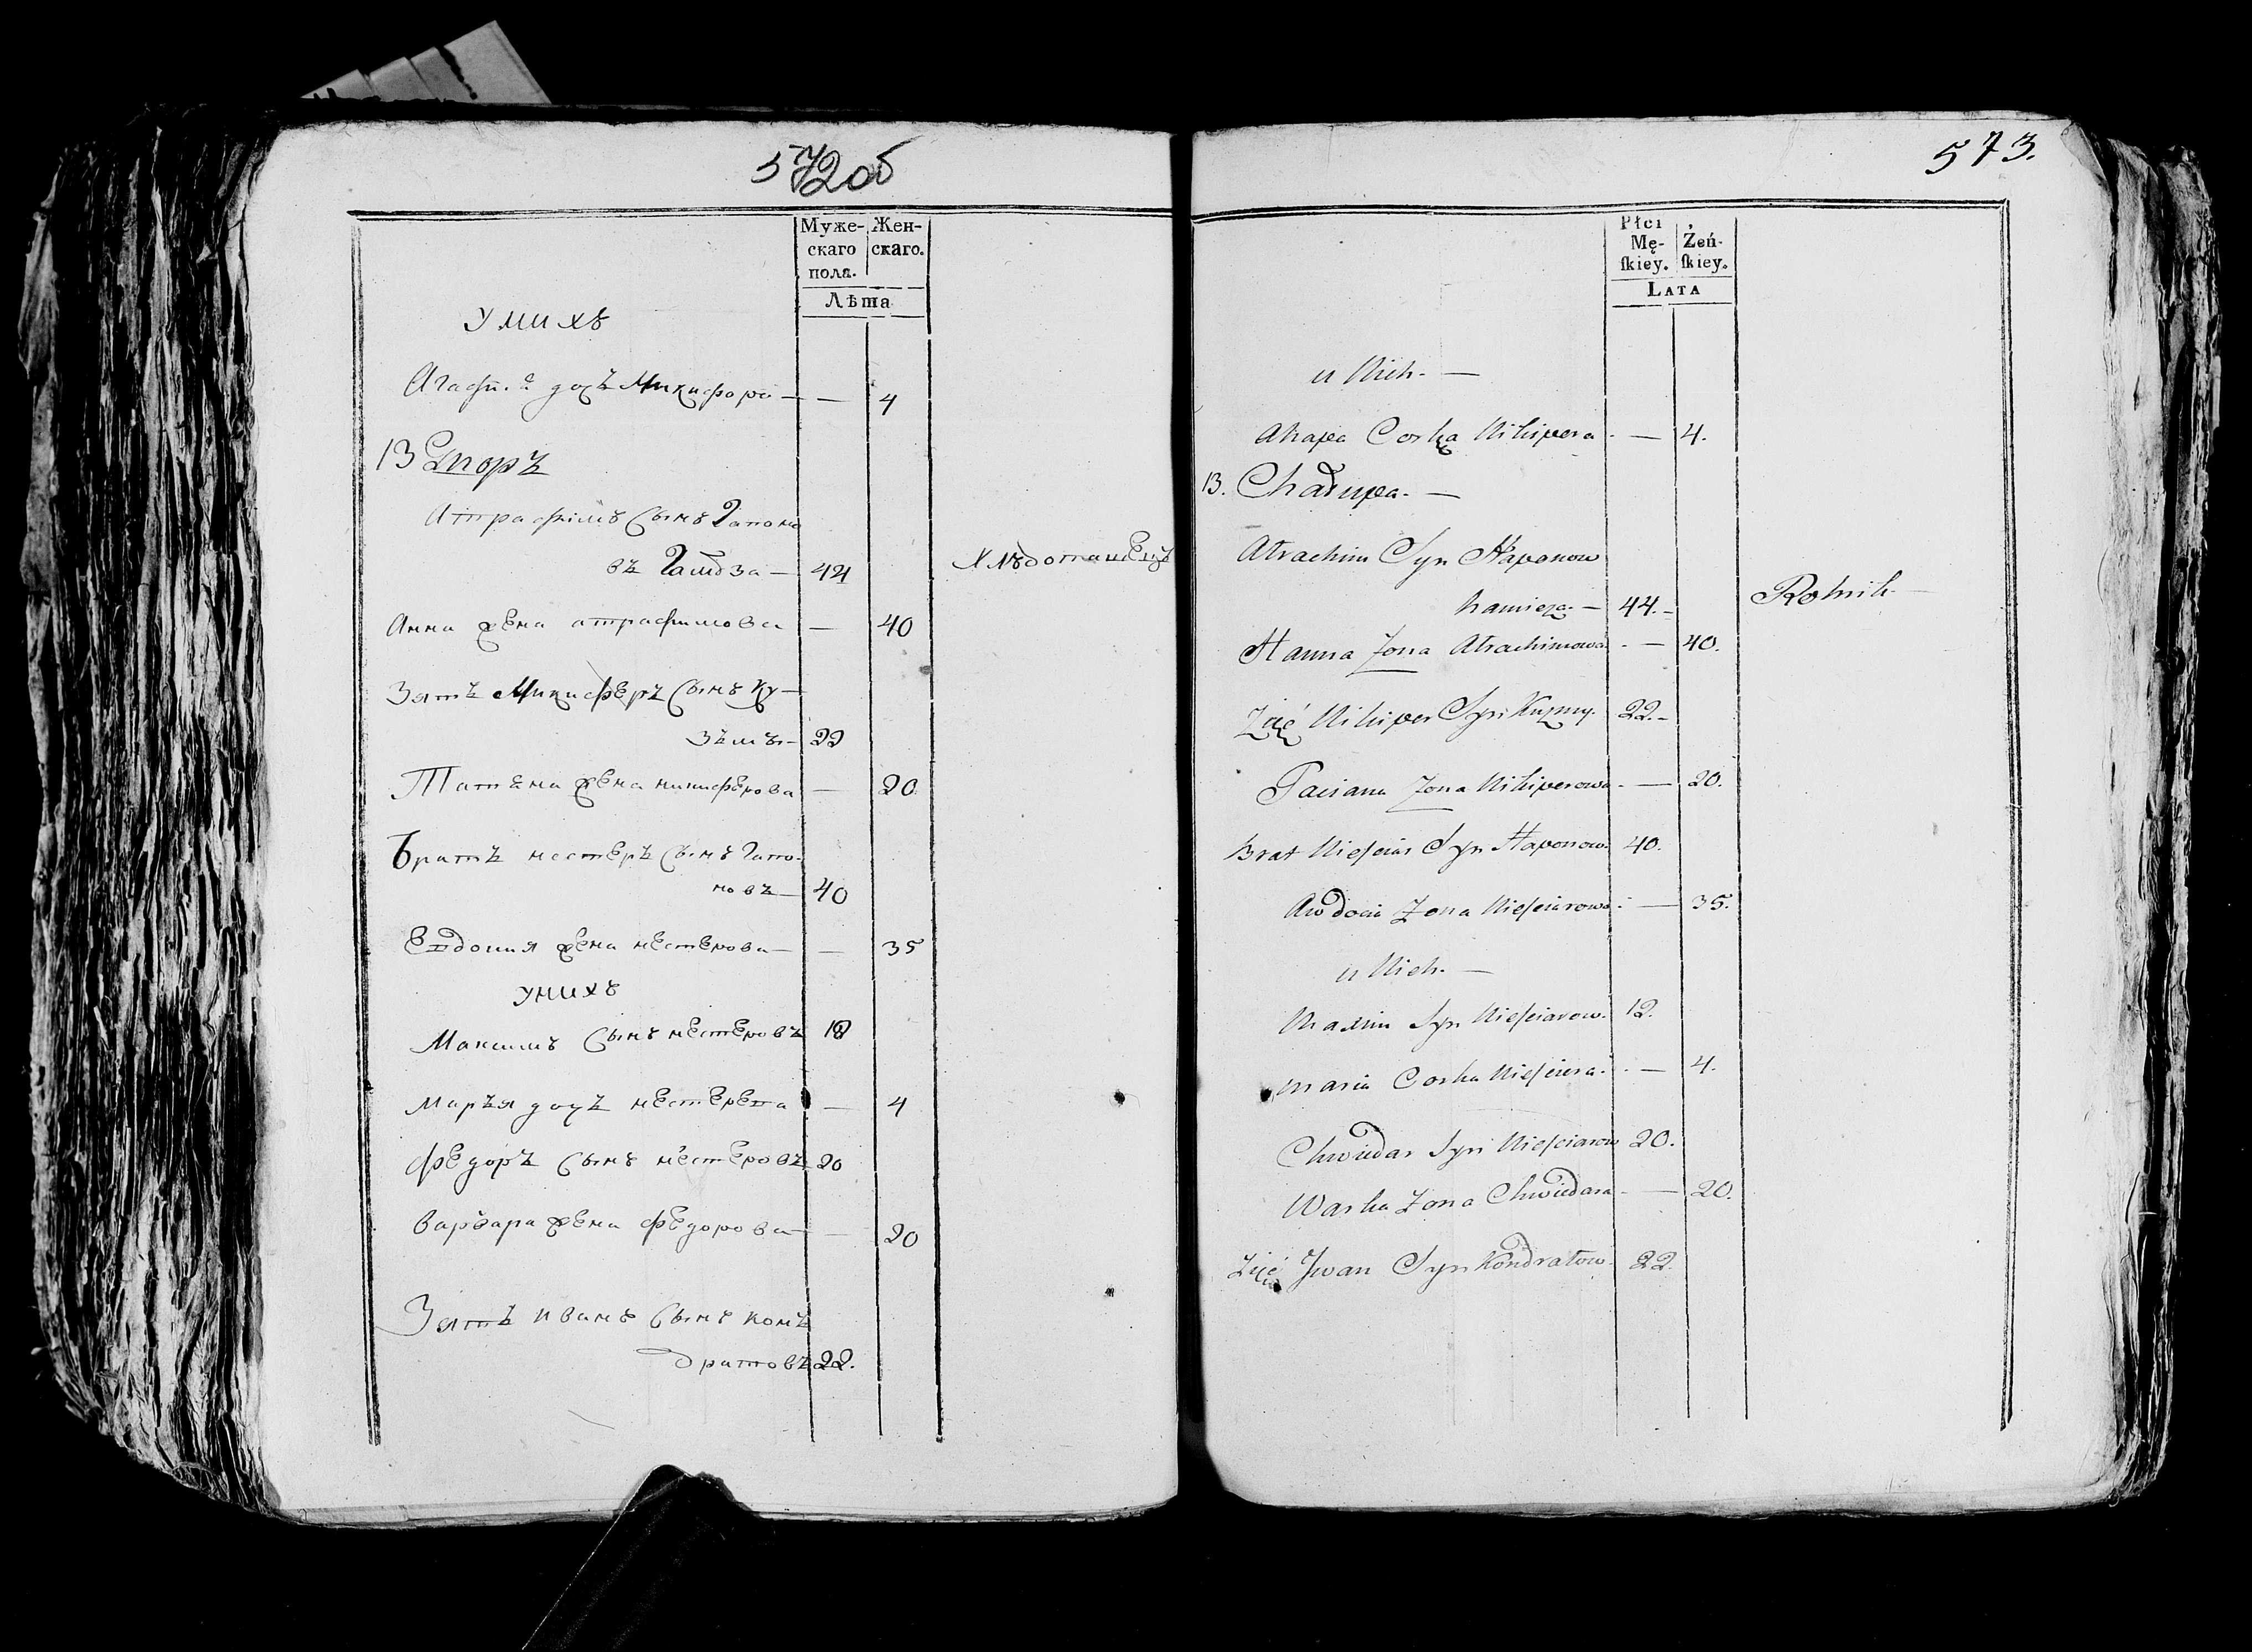 572об
Муже- Жен-
скаго скаго.
пола.
Лѣта
У нихъ
дочь Микифора — — 4
13 Дворъ
Атрафимъ Сынъ Гапоно
въ — 44 Хлѣбопашецъ
Анна жена атрафимова — 40
Зять Микиферъ Сынъ Ку-
зьмы — 22
Татяна жена никиферова — 20
Братъ нестеръ Сынъ Гапо-
новъ — 40
Евдокия жена нестерова — — 35
У нихъ
Максимъ Сынъ нестеровъ 12
Марья дочь нестерева — 4
Федоръ Сынъ нестеровъ 20
Варвара жена федорова — — 20
Зять иванъ Сынъ конъ
дратовъ 22.
573.
Płci
Mę- Żeń-
ſkiey. ſkiey.
Lata
u Nich. —
Ahapa Corka Nikipera — 4.
13. Chałupa. —
Atrachim Syn Haponow
— 44. — Rolnik —
Hanna Zona Atrachimowa — 40.
Zięć Nikiper Syn Kuzmy. 22. —
Taciana Zona Nikiperowa. — 20.
Brat Nieſciar Syn Haponow. 40.
Awdocia Zona Nieſciarowa. — 35.
u Nich. —
Maxim Syn Nieſciarow. 12.
Maria Corka Nieſciera. — 4.
Chwiedar Syn Nieſciarow 20.
Warka Zona Chwiedara — 20.
Zięć Jwan Syn Kondratow. 22.